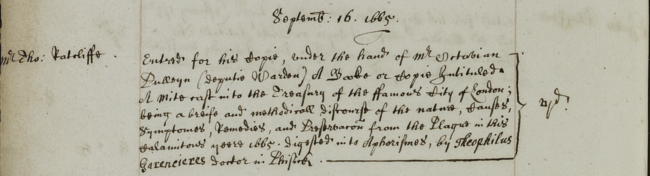 Septemb: 16. 1665.
Mr Tho: Ratcliffe.
Entred for his Copie, under the hand of Mr Octavian
Pulleyn (deputie Warden) A Booke or Copie Intituled
A Mite cast into the Treasury of the ffamous City of London;
being a breife and methodicall discourse of the nature, Causes,
Symptomes, Remedies, and Preservacon from the Plague in this
Calamitous yeere 1665. digested into Aphorismes, by Theophilus
Garencieres doctor in Phisick
vjd.